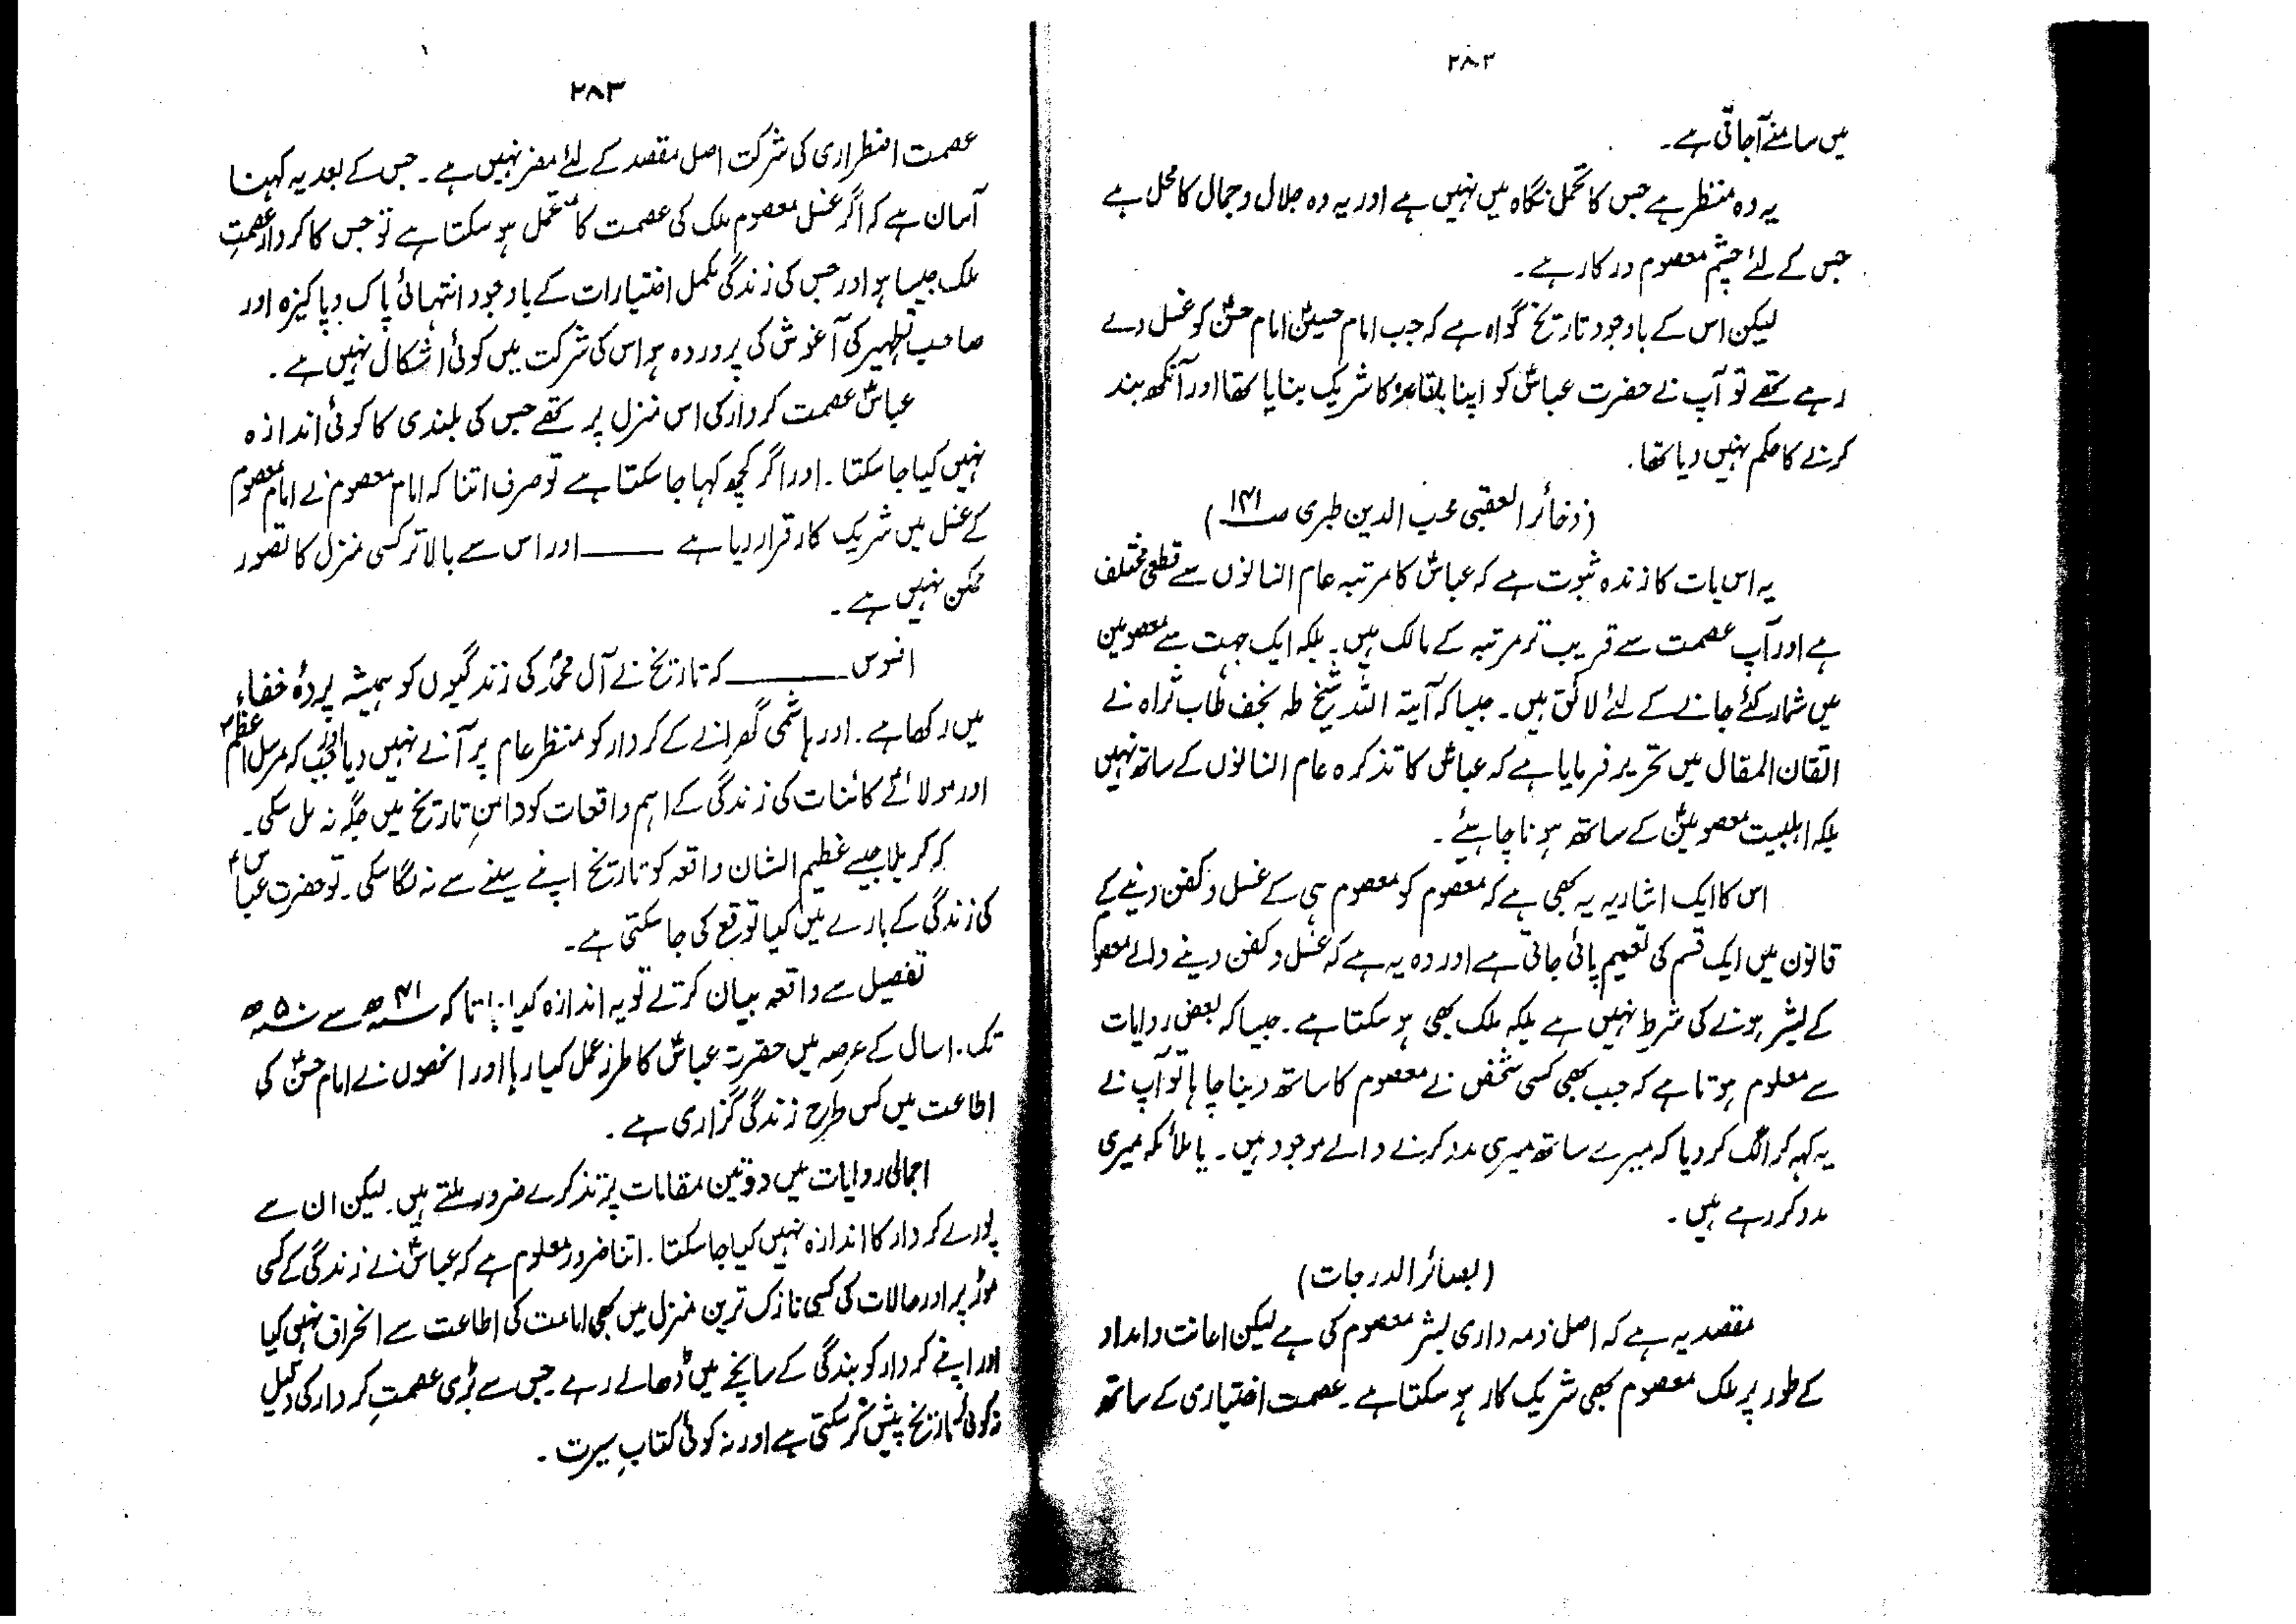 ۲۸۲
میں سامنے آجاتی ہے۔
یہ وہ منظر ہے جس کا تحمل نگاہ میں نہیں ہے اور یہ وہ جلال وجمال کا محل ہے
جس کے لئے چشم معصوم درکار ہے۔
لیکن اس کے باوجود تاریخ گواہ ہے کہ جب امام حسینؑ امام حسنؑ کو غسل دے
رہے تھے تو آپ نے حضرت عباسؑ کو اپنا باقاعدہ شریک بنایا تھا اور آنکھ بند
کرنے کا حکم نہیں دیا تھا۔
(ذخائر العقبی محب الدین طبری صـ۱۴۱)
یہ اس بات کا زندہ ثبوت ہے کہ عباسؑ کا مرتبہ عام انسانوں سے قطعی مختلف
ہے اور آپ عصمت سے قریب تر مرتبہ کے مالک ہیں۔ بلکہ ایک جہت سے معصومین
میں شمار کئے جانے کے لئے لائق ہیں۔ جیسا کہ آیۃ اللہ شیخ طہ نجف طاب ثراہ نے
اتقان المقال میں تحریر فرمایا ہے کہ عباسؑ کا تذکرہ عام انسانوں کے ساتھ نہیں
بلکہ اہلبیت معصومینؑ کے ساتھ ہونا چاہیئے۔
اس کا ایک اشاریہ یہ بھی ہے کہ معصوم کو معصوم ہی کے غسل وکفن دینے کے
قانون میں ایک قسم کی تعمیم پائی جاتی ہے اور وہ یہ ہے کہ غسل وکفن دینے والے معصو
کے بشر ہونے کی شرط نہیں ہے بلکہ ملک بھی ہو سکتا ہے۔ جیسا کہ بعض روایات
سے معلوم ہوتا ہے کہ جب بھی کسی شخص نے معصوم کا ساتھ دینا چاہا تو آپ نے
یہ کہہ کر الگ کر دیا کہ میرے ساتھ میری مدد کرنے والے موجود ہیں۔ یا ملائکہ میری
مدد کر رہے ہیں۔
(بصائر الدرجات)
مقصد یہ ہے کہ اصل ذمہ داری بشر معصوم کی ہے لیکن اعانت وامداد
کے طور پر ملک معصوم بھی شریک کار ہو سکتا ہے۔ عصمت اختیاری کے ساتھ
۲۸۳
عصمت اضطراری کی شرکت اصل مقصد کے لئے مضر نہیں ہے۔ جس کے بعد یہ کہنا
آسان ہے کہ اگر غسل معصوم ملک کی عصمت کا متحمل ہو سکتا ہے تو جس کا کردار عصمتِ
ملک جیسا ہو اور جس کی زندگی مکمل اختیارات کے باوجود انتہائی پاک وپاکیزہ اور
صاحب تطہیر کی آغوش کی پروردہ ہو اس کی شرکت میں کوئی اشکال نہیں ہے۔
عباسؑ عصمت کردار کی اس منزل پر تھے جس کی بلندی کا کوئی اندازہ
نہیں کیا جا سکتا۔ اور اگر کچھ کہا جا سکتا ہے تو صرف اتنا کہ امام معصوم نے امام معصوم
کے غسل میں شریک کار قرار دیا ہے ـــــ اور اس سے بالاتر کسی منزل کا تصور
ممکن نہیں ہے۔
افسوس ـــــ کہ تاریخ نے آل محمدؐ کی زندگیوں کو ہمیشہ پردۂ خفاء
میں رکھا ہے۔ اور ہاشمی گھرانے کے کردار کو منظر عام پر آنے نہیں دیا اور جب کہ مرسل اعظمؐ
اور مولائے کائنات کی زندگی کے اہم واقعات کو دامنِ تاریخ میں جگہ نہ مل سکی۔
کہ کربلا جیسے عظیم الشان واقعہ کو تاریخ اپنے سینے سے نہ لگا سکی۔ تو حضرت عباسؑ
کی زندگی کے بارے میں کیا توقع کی جا سکتی ہے۔
تفصیل سے واقعہ بیان کرتے تو یہ اندازہ کیا جاتا کہ ۴۱ھ سے ۵۰ھ
تک ۱۰ سال کے عرصہ میں حضرت عباسؑ کا طرز عمل کیا رہا اور انھوں نے امام حسنؑ کی
اطاعت میں کس طرح زندگی گزاری ہے۔
اجمالی روایات میں دو تین مقامات پر تذکرے ضرور ملتے ہیں۔ لیکن ان سے
پورے کردار کا اندازہ نہیں کیا جا سکتا۔ اتنا ضرور معلوم ہے کہ عباسؑ نے زندگی کے کسی
موڑ پر اور حالات کی کسی نازک ترین منزل میں بھی امامت کی اطاعت سے انحراف نہیں کیا
اور اپنے کردار کو بندگی کے سانچے میں ڈھالے رہے جس سے بڑی عصمتِ کردار کی دلیل
نہ کوئی تاریخ پیش کر سکتی ہے اور نہ کوئی کتابِ سیرت۔